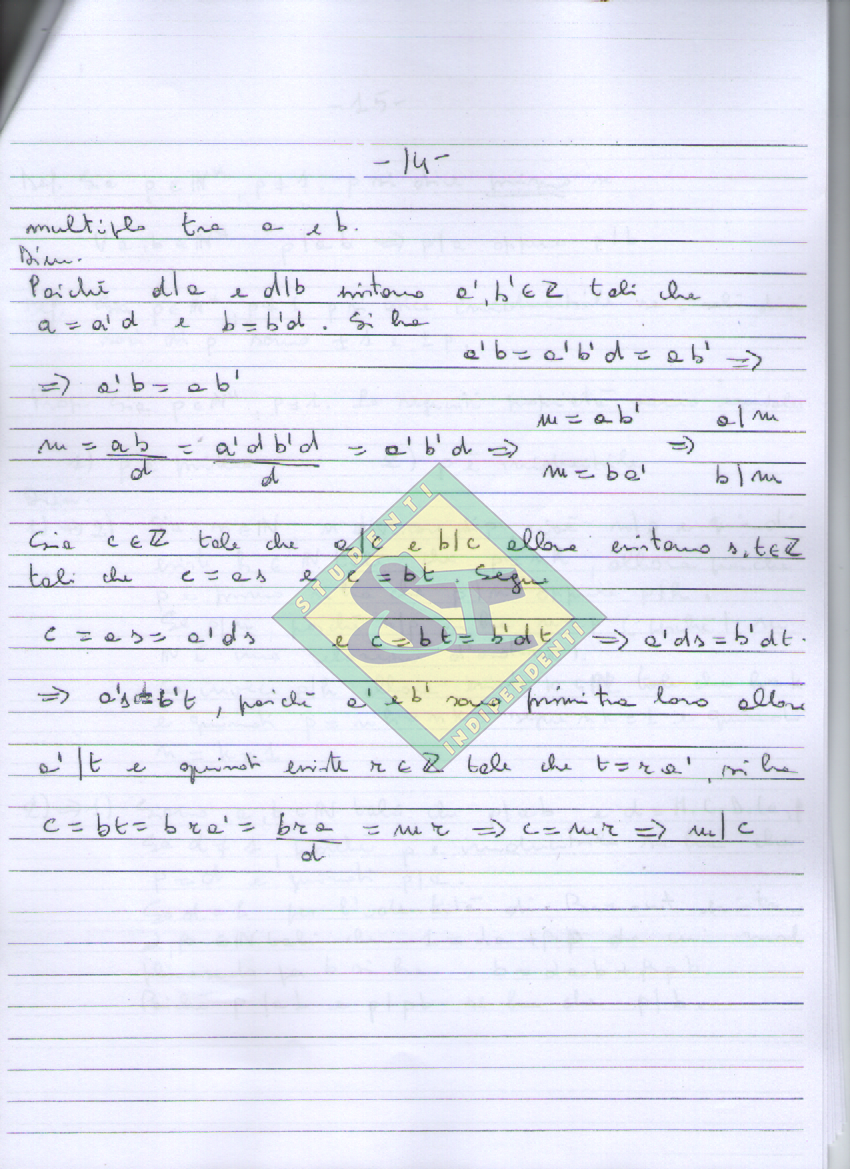 - 14 -
multiplo tra a e b.
Dim.
Poiché d|a e d|b esistono a', b' ∈ ℤ tali che
a = a'd e b = b'd. Si ha
a'b = a'b'd = ab' ⇒
⇒ a'b = ab'
m = ab/d = a'd b'd/d = a'b'd ⇒ m = ab' m = ba' ⇒ a|m b|m
Sia c ∈ ℤ tale che a|c e b|c allora esistono s, t ∈ ℤ
tali che c = as e c = bt. Segue
c = as = a'ds e c = bt = b'dt ⇒ a'ds = b'dt.
⇒ a's = b't, poiché a' e b' sono primi tra loro allora
a'|t e quindi esiste r ∈ ℤ tale che t = ra', si ha
c = bt = bra' = bra/d = mr ⇒ c = mr ⇒ m|c
STUDENTI
SI
INDIPENDENTI